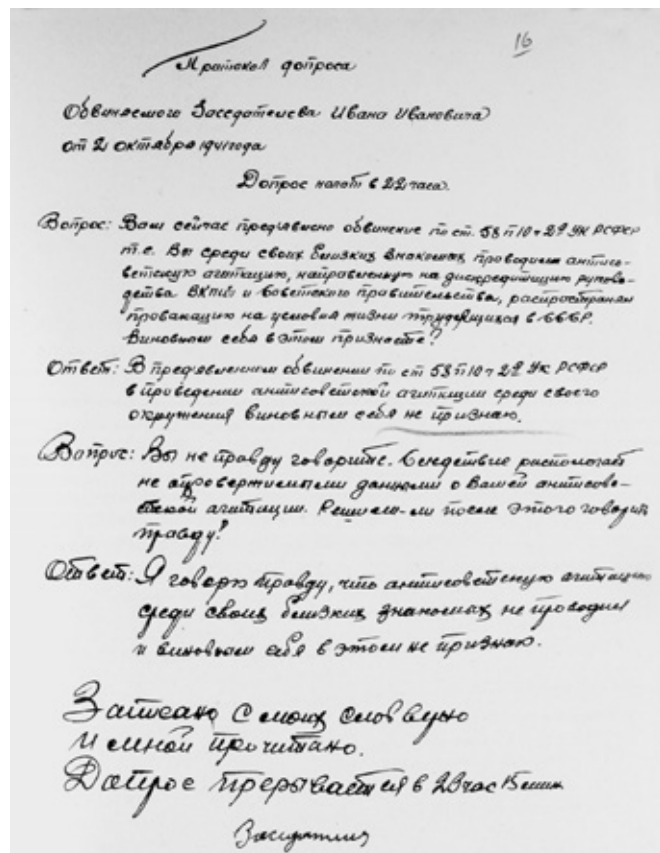 16
Протокол допроса
Обвиняемого Заседателева Ивана Ивановича
от 21 октября 1941 года
Допрос начат в 22 часа.
Вопрос: Вам сейчас предъявлено обвинение по ст. 58 п 10 ч 2й УК РСФСР
т.е. Вы среди своих близких знакомых проводили антисо-
ветскую агитацию, направленную на дискредитацию руково-
дства ВКП(б) и Советского правительства, распространяя
провакацию на условия жизни трудящихся в СССР.
Виновным себя в этом признаете?
Ответ: В предъявленном обвинении по ст 58 п 10 ч 2й УК РСФСР
в проведении антисоветской агитации среди своего
окружения виновным себя не признаю.
Вопрос: Вы не правду говорите. Следствие распологает
не опровертимыми данными о Вашей антисове-
тской агитации. Решили-ли после этого говорить
правду?
Ответ: Я говорю правду, что антисоветскую агитацию
среди своих близких знакомых не проводил
и виновным себя в этом не признаю.
Записано с моих слов верно
и мной прочитано.
Допрос прерывается в 23 час 15 мин